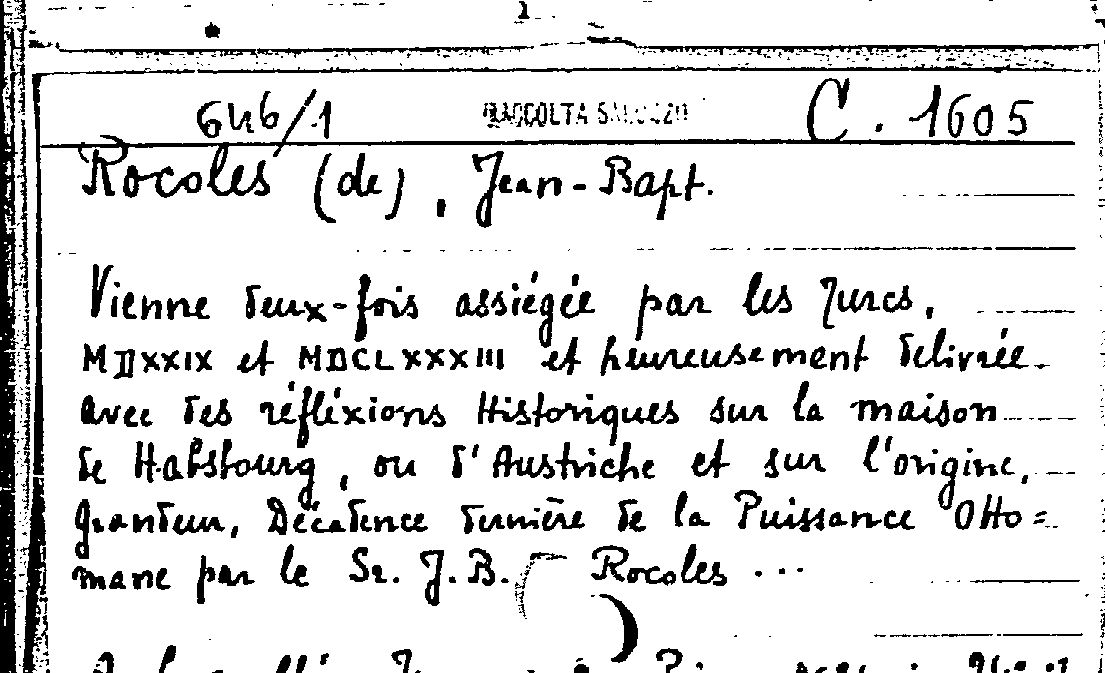 646/1 RACCOLTA SALUZZO C. 1605
Rocoles (de), Jean-Bapt.
Vienne deux-fois assiégée par les Turcs,
MDXXIX et MDCLXXXIII et heureusement delivrée
avec des réfléxions Historiques sur la maison
de Habsbourg, ou d'Austriche et sur l'origine,
grandeur, Décadence dernière de la Puissance Otto=
mane par le Sr. J.B. Rocoles ...